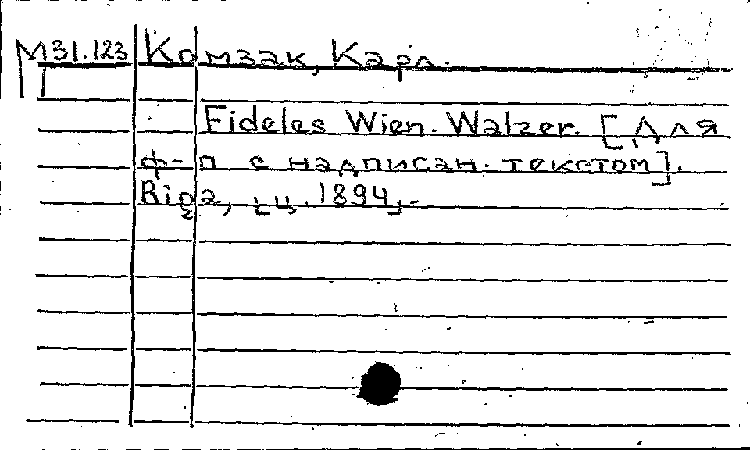 М31.123 Комзак, Карл.
П
Fideles Wien. Walzer. [Для
ф-п с надписан. текстом].
Riga, [ц. 1894].-